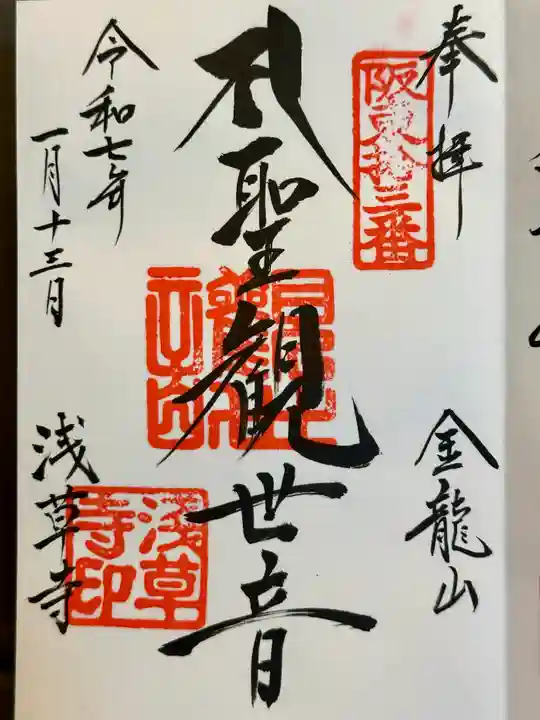 奉拝
阪東拾三番
金龍山
聖観世音
令和七年
一月十三日
浅草寺
浅草寺印